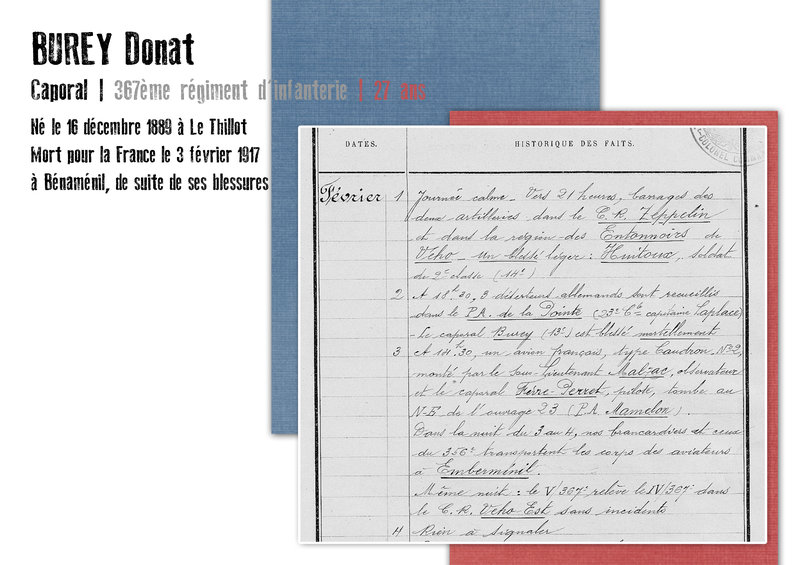 BUREY Donat
Caporal | 367ème régiment d'infanterie | 27 ans
Né le 16 décembre 1889 à Le Thillot
Mort pour la France le 3 février 1917
à Bénaménil, de suite de ses blessures
DATES. HISTORIQUE DES FAITS.
Février 1 Journée calme - Vers 21 heures, barrages des
deux artilleries dans le C.R. Zeppelin
et dans la région des Entonnoirs de
Veho - un blessé léger : Huitoux, soldat
de 2e classe (14e)
2 A 18h.30, 3 déserteurs allemands sont recueillis
dans le P.A. de la Pointe (23e Cie capitaine Laplace)
- Le caporal Burey (13e) est blessé mortellement
3 A 14h.30, un avion français, type Caudron, N°2,
monté par le Sous-Lieutenant Malzac, observateur
et le caporal Ferre-Perret, pilote, tombe au
N-E de l'ouvrage 23 (P.A. Mamelon).
Dans la nuit du 3 au 4, nos brancardiers et ceux
du 356e transportent les corps des aviateurs
à Emberménil.
Même nuit : le V/367e relève le IV/367e dans
le C.R. Veho Est sans incidents
4 Rien à signaler